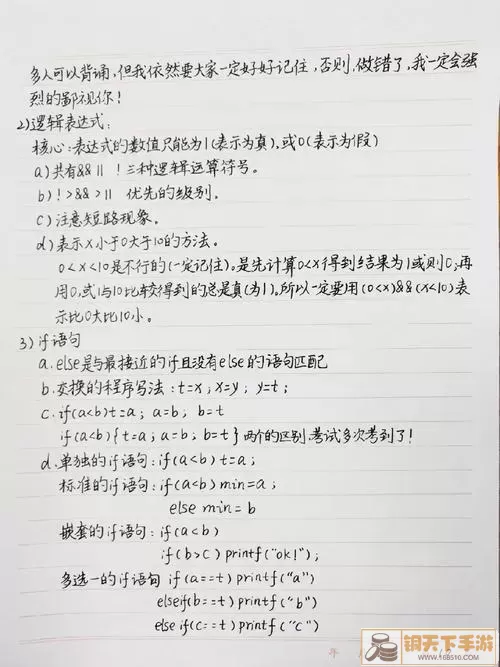 多人可以背诵,但我依然要大家一定好好记住,否则,做错了,我一定会强
烈的鄙视你!
2)逻辑表达式:
核心:表达式的数值只能为1(表示为真),或0(表示为假)
a)共有&& || ! 三种逻辑运算符号。
b)!>&&>|| 优先的级别。
c)注意短路现象。
d)表示x小于0大于10的方法。
0<x<10是不行的(一定记住)。是先计算0<x得到结果为1或则0;再
用0,或1与10比较得到的总是真(为1)。所以一定要用(0<x)&&(x<10)表
示比0大比10小。
3)if语句
a.else是与最接近的if且没有else的语句匹配
b.交换的程序写法:t=x;x=y;y=t;
c.if(a<b)t=a;a=b;b=t
if(a<b){t=a;a=b;b=t}两个的区别,考试多次考到了!
d.单独的if语句:if(a<b)t=a;
标准的if语句:if(a<b)min=a;
else min=b
嵌套的if语句:if(a<b)
if(b>c)printf("ok!");
多选一的if语句 if(a==t)printf("a")
elseif(b==t)printf("b")
else if(c==t)printf("c")
年
铜天下手游